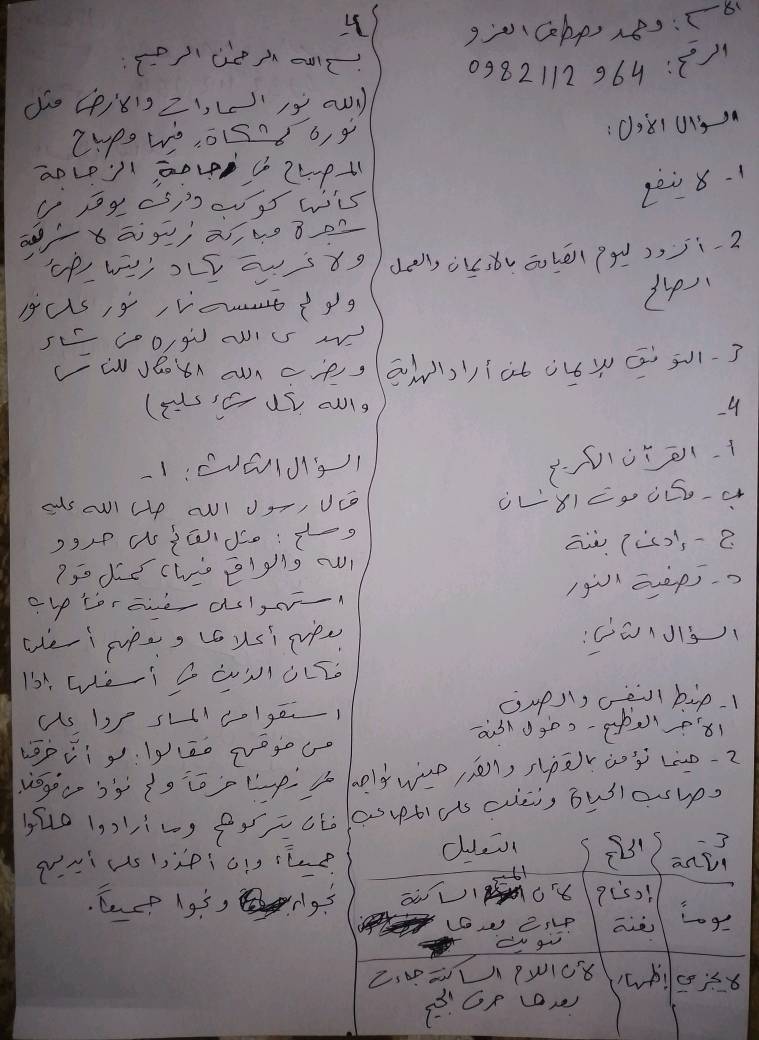 الاسم: محمد مصطفى العزو
الرقم: 0982112964
السؤال الأول:
1- لا ينفع
2- أتزود ليوم القيامة بالإيمان والعمل
الصالح
3- التوفيق للإيمان لمن أراد الهداية
4-
أ- القرآن الكريم
ب- مكان موت الانسان
ج- إدغام بغنة
د- تصفية النور
السؤال الثاني:
1- ضبط النفس والصدق
الأجر العظيم - دخول الجنة
2- حينما نؤمن بالقضاء والقدر حينها نواجه
مصاعب الحياة ونتغلب على المصاعب
3
الكلمة الحكم التعليل
يوماً إدغام بغنة لأن الميم الساكنة
جاءت بعدها
تنوين
لا يجزي إظهار لأن اللام الساكنة جاءت
بعدها حرف الجيم
4
بسم الله الرحمن الرحيم:
(الله نور السماوات والأرض مثل
نوره كمشكاة، فيها مصباح
المصباح في زجاجةٍ الزجاجة
كأنها كوكب دري يوقد من
شجرة مباركة زيتونة لا شرقية
ولا غربية يكاد زيتها يضيء
ولو لم تمسسه نار نور على نور
يهدي الله لنوره من يشاء
ويضرب الله الأمثال للناس
والله بكل شيء عليم)
السؤال الثالث: 1-
قال رسول الله صلى الله عليه
وسلم: مثل القائم على حدود
الله والواقع فيها، كمثل قوم
استهموا على سفينة، فأصاب
بعضهم أعلاها وبعضهم أسفلها
فكان الذين في أسفلها إذا
استقوا من الماء مروا على
من فوقهم فقالوا: لو أنّا خرقنا
في نصيبنا خرقاً ولم نؤذ من فوقنا.
فأن يتركوهم وما أرادوا هلكوا
جميعاً، وإن أخذوا على أيديهم
نجوا، ونجوا جميعاً.